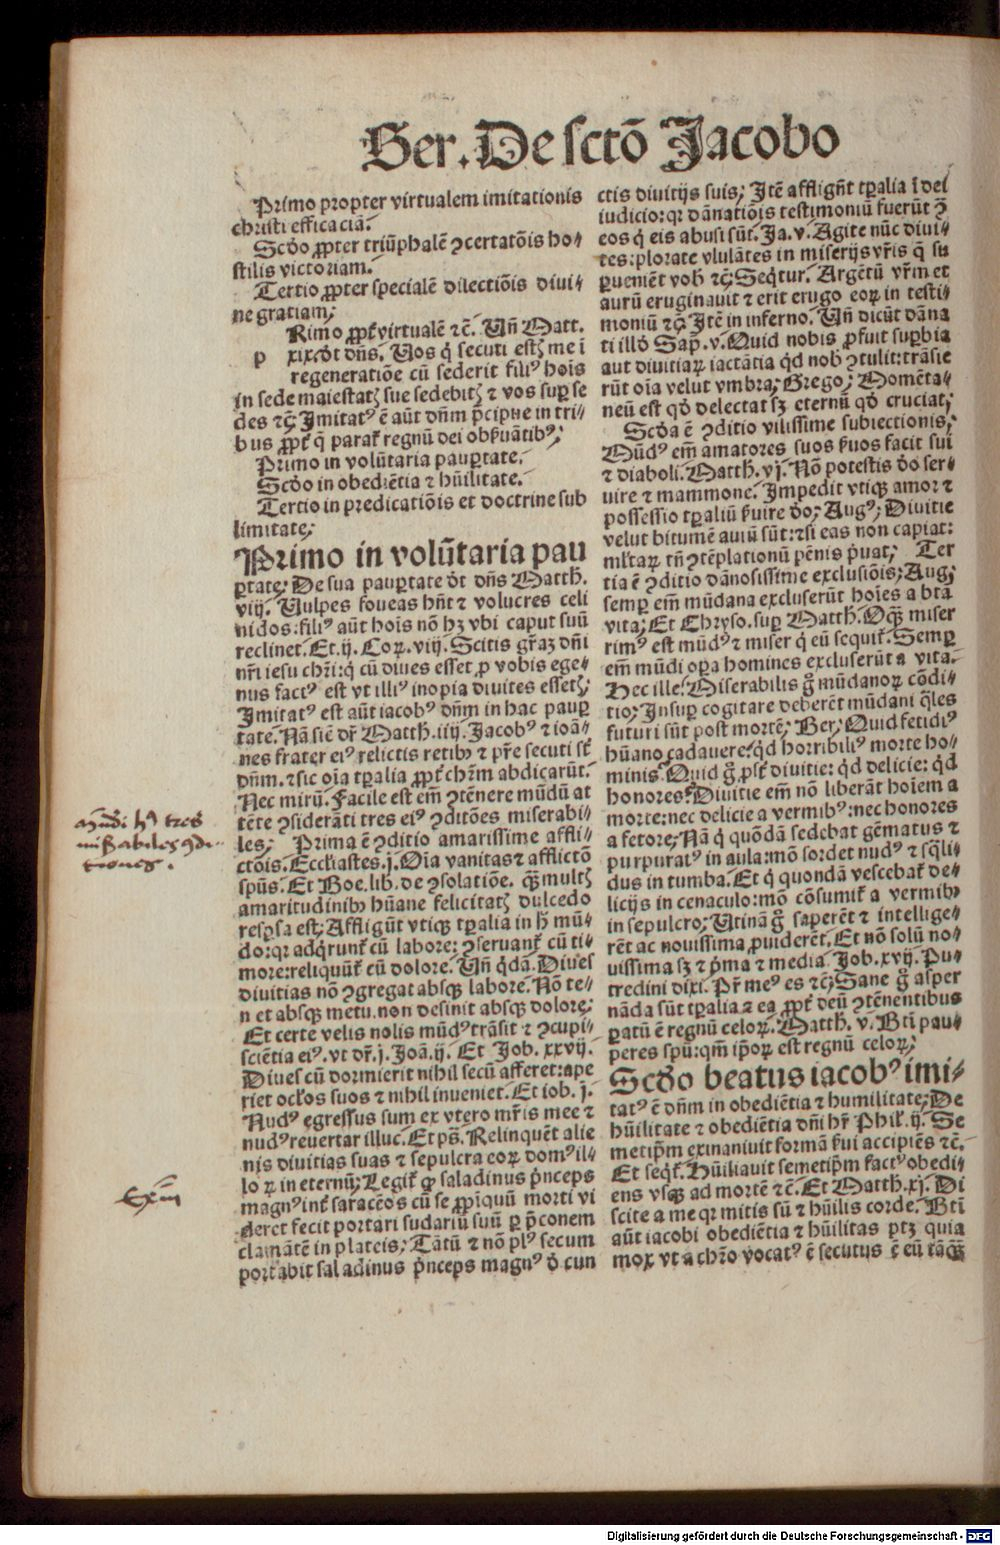 Ser. De sctō Jacobo
Primo propter virtualem imitationis
christi efficaciā.
Scḋo ꝓpter triūphalē ꝯcertatōis ho⸗
stilis victoriam.
Tertio ꝓpter specialē dilectiōis diui⸗
ne gratiam;
p
Rimo ꝓpt̄ virtualē ⁊c̄. Uñ Matt.
xix. ḋt dñs. Uos q̇ secuti estꝭ me ī
regeneratiōe cū sederit filiꝰ hoīs
in sede maiestatꝭ sue sedebitꝭ ⁊ vos suꝑ se
des ⁊c̄; Imitatꝰ ē aūt dñm p̄cipue in tri⸗
bus ꝓpt̄ q̄ parat̄ regnū dei obẜuātibꝰ;
Primo in volūtaria pauꝑtate.
Scḋo in obediētia ⁊ hūilitate.
Tertio in predicatiōis et doctrine sub
limitate;
Primo in volūtaria pau
ꝑtate; De sua pauꝑtate ḋt dñs Matth.
viij. Uulpes foueas hñt ⁊ volucres celi
nidos: filiꝰ aūt hoīs nō hꝫ vbi caput suū
reclinet. Et .ij. Coꝝ. viij. Scitis gr̄aꝫ dñi
nr̄i iesu chr̄i: q̇ cū diues esset ꝓ vobis ege⸗
nus factꝰ est vt illiꝰ inopia diuites essetꝭ;
Imitatꝰ est aūt iacobꝰ dñm in hac pauꝑ
tate. Nā siē dr̄ Matth. iiij. Jacobꝰ ⁊ ioā⸗
nes frater eiꝰ relictis retibꝫ ⁊ pr̄e secuti st̄
dñm. ⁊ sic oīa tꝑalia ꝓpt̄ chr̄m abdicarūt.
Nec mirū. Facile est em̄ ꝯtēnere mūdū at
tēte ꝯsiderāti tres eiꝰ ꝯditōes miserabi⸗
les; Prima ē ꝯditio amarissime affli⸗
ctōis. Ecclīastes. j. Oīa vanitas ⁊ afflictō
spūs. Et Boe. lib. de ꝯsolatiōe. qꝫ̄ multꝭ
amaritudinibꝫ hūane felicitatꝭ dulcedo
resꝑsa est; Affligūt vtiqꝫ tꝑalia in ḣ mū⸗
do: qꝛ adq̇runt̄ cū labore: ꝯseruant̄ cū ti⸗
more: reliquūt̄ cū dolore. Uñ q̇dā. Diues
diuitias nō ꝯgregat absqꝫ labore. Nō te⸗
n et absqꝫ metu. non desinit absqꝫ dolore;
Et certe velis nolis mūdꝰ trāsit ⁊ ꝯcupi⸗
sciētia eiꝰ. vt dr̄ .j. Joā. ij. Et Job. xxvij.
Diues cū dormierit nihil secū afferet: ape
riet oclos suos ⁊ nihil inueniet. Et iob. j.
Nudꝰ egressus sum ex vtero mr̄is mee ⁊
nudꝰ reuertar illuc. Et ps̄. Relinquēt alie
nis diuitias suas ⁊ sepulcra eoꝝ domꝰ il⸗
lo ꝝ in eternū; Legit̄ ꝙ saladinus p̄nceps
magnꝰ int̄ saraceōs cū se ꝓpīquū morti vi
deret fecit portari sudariū suū ꝑ p̄conem
clamātē in plateis; Tātū ⁊ nō plꝰ secum
portabit sal adinus p̄nceps magnꝰ ḋ cun
ctis diuitijs suis; Itē affligñt tꝑalia ī dei
iudicio: qꝛ dānatiōis testimoniū fuerūt ꝯ̄
eos q̇ eis abusi sūt. Ja. v. Agite nūc diui⸗
tes: plorate vlulātes in miserijs vr̄is q̄ su
ꝑueniēt vob̄ ⁊c̄; Seq̇tur. Argētū vr̄m et
aurū eruginauit ⁊ erit erugo eoꝝ in testi⸗
moniū ⁊c̄; Itē in inferno. Uñ dicūt dāna
ti illḋ Sap. v. Quid nobis ꝓfuit suꝑbia
aut diuitiaꝝ iactātia qḋ nob̄ ꝯtulit: trāsie
rūt oīa velut vmbra; Grego; Momēta⸗
neū est qḋ delectat sꝫ eternū qḋ cruciat;
Scḋa ē ꝯditio vilissime subiectionis;
Mūdꝰ em̄ amatores suos ẜuos facit sui
⁊ diaboli. Matth. vj. Nō potestis ḋo ser⸗
uire ⁊ mammone. Impedit vtiqꝫ amor ⁊
possessio tꝑaliū ẜuire ḋo; Augꝰ; Diuitie
velut bitumē auiū sūt: ⁊ si eas non capiat:
ml̄taꝝ tñ ꝯtēplationū pēnis p̄uat; Ter
tia ē ꝯditio dānosissime exclusiōis; Aug;
semꝑ em̄ mūdana excluserūt hoīes a bta
vita; Et Chryso. suꝑ Matth. Oqꝫ̄ miser
rimꝰ est mūdꝰ ⁊ miser q̇ eū sequit̄. Semꝑ
em̄ mūdi oꝑa homines excluserūt a vita.
Hec ille. Miserabilis g̊ mūdanoꝝ cōdi⸗
tio; Insuꝑ cogitare deberēt mūdani q̄les
futuri sūt post mortē; Ber; Quid fetidiꝰ
hūano cadauere: qḋ horribiliꝰ morte ho⸗
minis. Quid g̊ ꝓst̄ diuitie: qḋ delicie: qḋ
honores? Diuitie em̄ nō liberāt hoīem a
morte: nec delicie a vermibꝰ: nec honores
a fetore; Nā q̇ quōdā sedebat gēmatus ⁊
purpuratꝰ in aula: mō sordet nudꝰ ⁊ sq̄li⸗
dus in tumba. Et q̇ quondā vescebat̄ de⸗
licijs in cenaculo: mō cōsumit̄ a vermibꝫ
in sepulcro; Utinā g̊ saperēt ⁊ intellige⸗
rēt ac nouissima ꝓuiderēt. Et nō solū no⸗
uissima sꝫ ⁊ p̄ma ⁊ media. Job. xvij. Pu⸗
tredini dixi. Pr̄ meꝰ es ⁊c̄; Sane g̊ asper
nāda sūt tꝑalia. ⁊ ea ꝓpt̄ deū ꝯtēnentibus
ꝑatū ē regnū celoꝝ. Matth. v. Bt̄i pau⸗
peres spū: qm̄ ip̄oꝝ est regnū celoꝝ;
Scḋo beatus iacobꝰ imi⸗
tatꝰ ē dñm in obediētia ⁊ humilitate; De
hūilitate ⁊ obediētia dñi hr̄ Phil̄. ij. Se
metip̄m exinaniuit formā ẜui accipiēs ⁊c̄.
Et seq̇t̄. Hūiliauit semetip̄m factꝰ obedi⸗
ens vsqꝫ ad mortē ⁊c̄. Et Matth. xj. Di
scite a me qꝛ mitis sū ⁊ hūilis corde. Bt̄i
aūt iacobi obediētia ⁊ hūilitas ptꝫ quia
mox vt a chr̄o vocatꝰ ē secutus ē eū tāqꝫ̄
mūdi hꝫ tres
miẜabiles ꝯdi⸗
tiones.
Exm̄
Digitalisierung gefördert durch die Deutsche Forschungsgemeinschaft - DFG